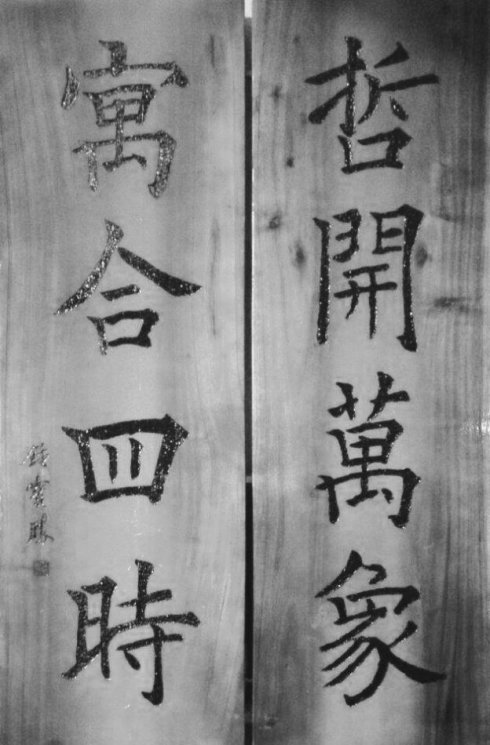 哲開萬象
寓合四時